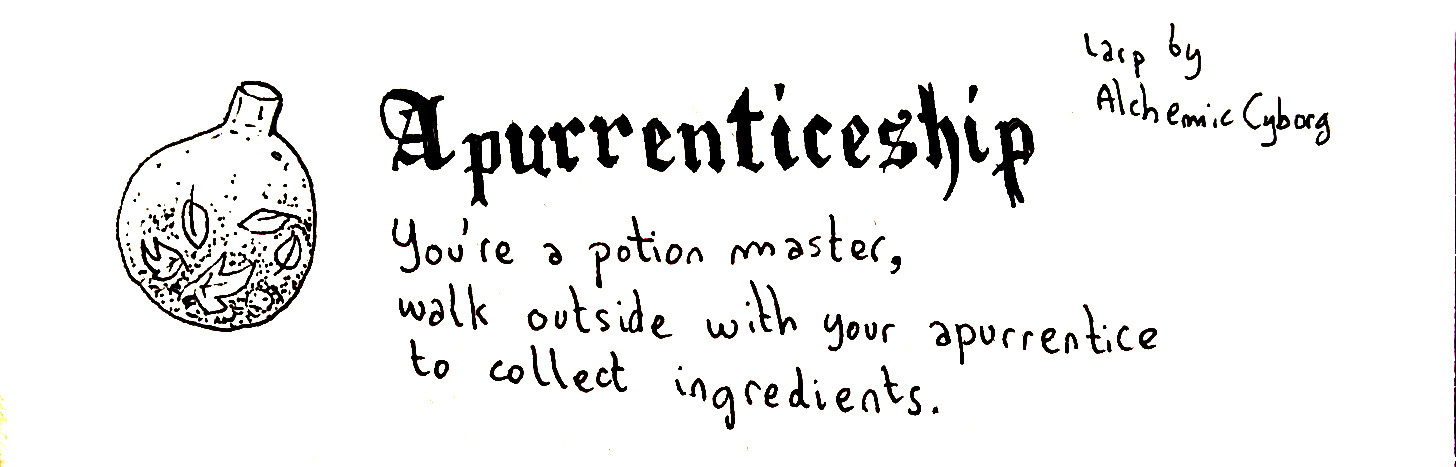 Larp by
Alchemic Cyborg
Apurrenticeship
You're a potion master,
walk outside with your apurrentice
to collect ingredients.